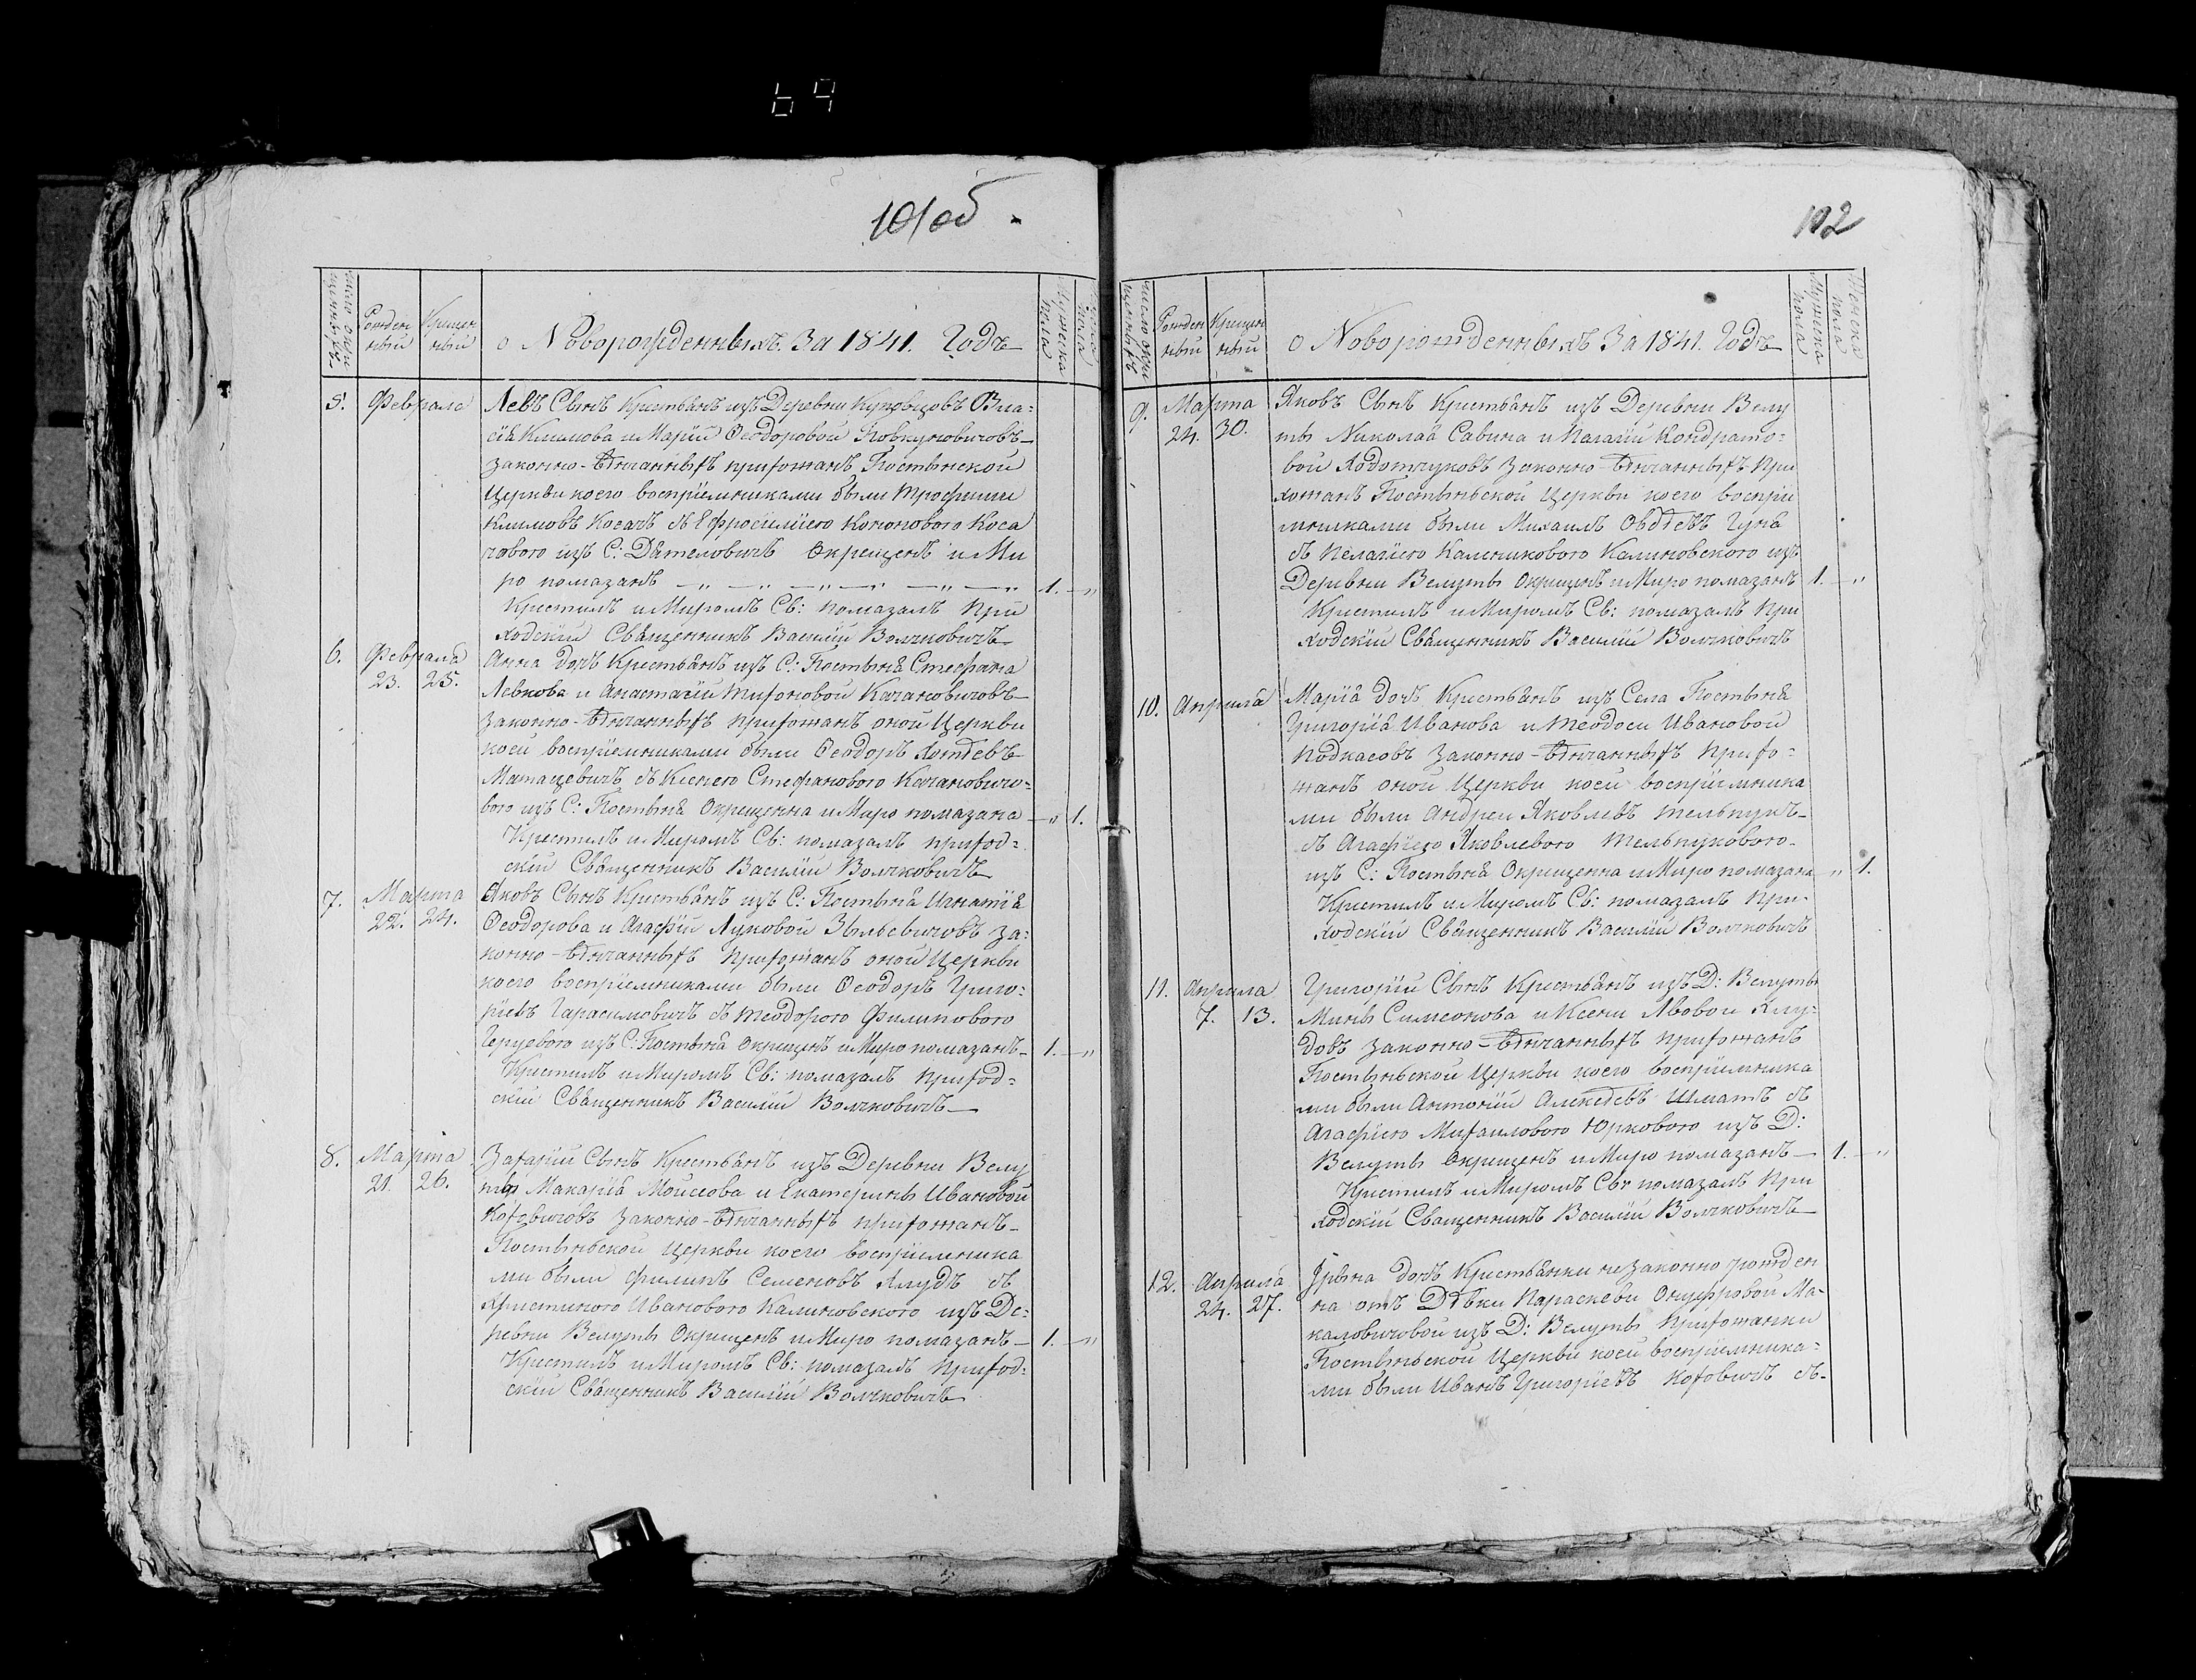 69
101об
число окре
щенныхъ
Рожден
ный
Крещен
ный
о Новорожденныхъ За 1841. Годъ
Мужеска
пола
5. Февраля
Левъ Сынъ Крестьянъ изъ Деревни Куковцовъ Ѳвла=
сія Климова и Маріи Ѳеодоровой
законно-вѣнчанныхъ прихожанъ Постынской
Церкви коего воспріемниками были Трофимъ
Климовъ Косачъ съ Ефросиніею Кононовою Коса
човою изъ С: Дятеловичъ Окрещенъ и Ми
ро помазанъ 1. — „
Крестилъ и Миромъ Св: помазалъ при
ходскій Священникъ Василій Волчковичъ
6. Февраля
23. 25.
Анна дочь Крестьянъ изъ С: Постыня Стефана
Левкова и Анастасіи Тихоновой Качановичовъ
законно-вѣнчанныхъ прихожанъ оной Церкви
коей воспріемниками были Ѳеодоръ
Матацевичъ съ Ксенею Стефановою Качановичо=
вою изъ С: Постыня Окрещенна и Миро помазана — „ 1.
Крестилъ и Миромъ Св: помазалъ приход=
скій Священникъ Василій Волчковичъ
7. Марта
22. 24.
Яковъ Сынъ Крестьянъ изъ С: Постыня Игнатія
Ѳеодорова и Агафіи Луковой Зылевичовъ за=
конно-вѣнчанныхъ прихожанъ оной Церкви
коего воспріемниками были Ѳеодоръ Григо=
ріевъ Гарасимовичъ съ Теодорою Филиповою
изъ С: Постыня Окрещенъ и Миро помазанъ 1. — „
Крестилъ и Миромъ Св: помазалъ приход=
скій Священникъ Василій Волчковичъ
8. Марта
21. 26.
Захарій Сынъ Крестьянъ изъ Деревни Велу
ты Макарія Моисеова и Екатерины Ивановой
Коховичовъ законно-вѣнчанныхъ прихожанъ
Постыньской Церкви коего воспріемника
ми были Филипъ Семеновъ Хлудъ съ
Христиною Ивановою Калиновскою изъ Де=
ревни Велуты Окрещенъ и Миро помазанъ 1. — „
Крестилъ и Миромъ Св: помазалъ приход=
скій Священникъ Василій Волчковичъ
102
число окре
щенныхъ
Рожден
ный
Крещен
ный
о Новорожденныхъ За 1841. Годъ
Мужеска
пола
Женска
пола
9. Марта
24. 30.
Яковъ Сынъ Крестьянъ изъ Деревни Велу
ты Николая Савина и Пагагіи Кондрато=
вой Ходотчуковъ законно-вѣнчанныхъ при
хожанъ Постыньской Церкви коего воспріе
мниками были Михаилъ Овдѣевъ
съ Пелагіею Калениковою Калиновскою изъ
Деревни Велуты Окрещенъ и Миро помазанъ 1. — „
Крестилъ и Миромъ Св: помазалъ при
ходскій Священникъ Василій Волчковичъ
10. Апрыля
Марія дочь Крестьянъ изъ Села Постыня
Григорія Иванова и Теодоси Ивановой
Подкасовъ законно-вѣнчанныхъ прихо=
жанъ оной Церкви коей воспріемника
ми были Андрей Яковлевъ Тельпукъ
съ Агафіею Яковлевою Тельпуковою
изъ С: Постыня Окрещенна и Миро помазана „ 1.
Крестилъ и Миромъ Св: помазалъ при=
ходскій Священникъ Василій Волчковичъ
11. Апрыла
7. 13.
Григорій Сынъ Крестьянъ изъ Д: Велуты
Мины Симеонова и Ксени Львовой Хлу=
довъ законно-вѣнчанныхъ прихожанъ
Постыньской Церкви коего воспріемника
ми были Антоній Алексѣевъ Шматъ съ
Агафіею Михаиловою Юрковою изъ Д:
Велуты Окрещенъ и Миро помазанъ 1. — „
Крестилъ и Миромъ Св: помазалъ при
ходскій Священникъ Василій Волчковичъ
12. Апрыля
24. 27.
Ірына дочь Крестьянки незаконно рожден
на отъ Дѣвки Параскеви Онуфровой Ма=
каловичовой изъ Д: Велуты прихожанки
Постыньской Церкви коей воспріемника=
ми были Иванъ Григоріевъ Коховичъ съ